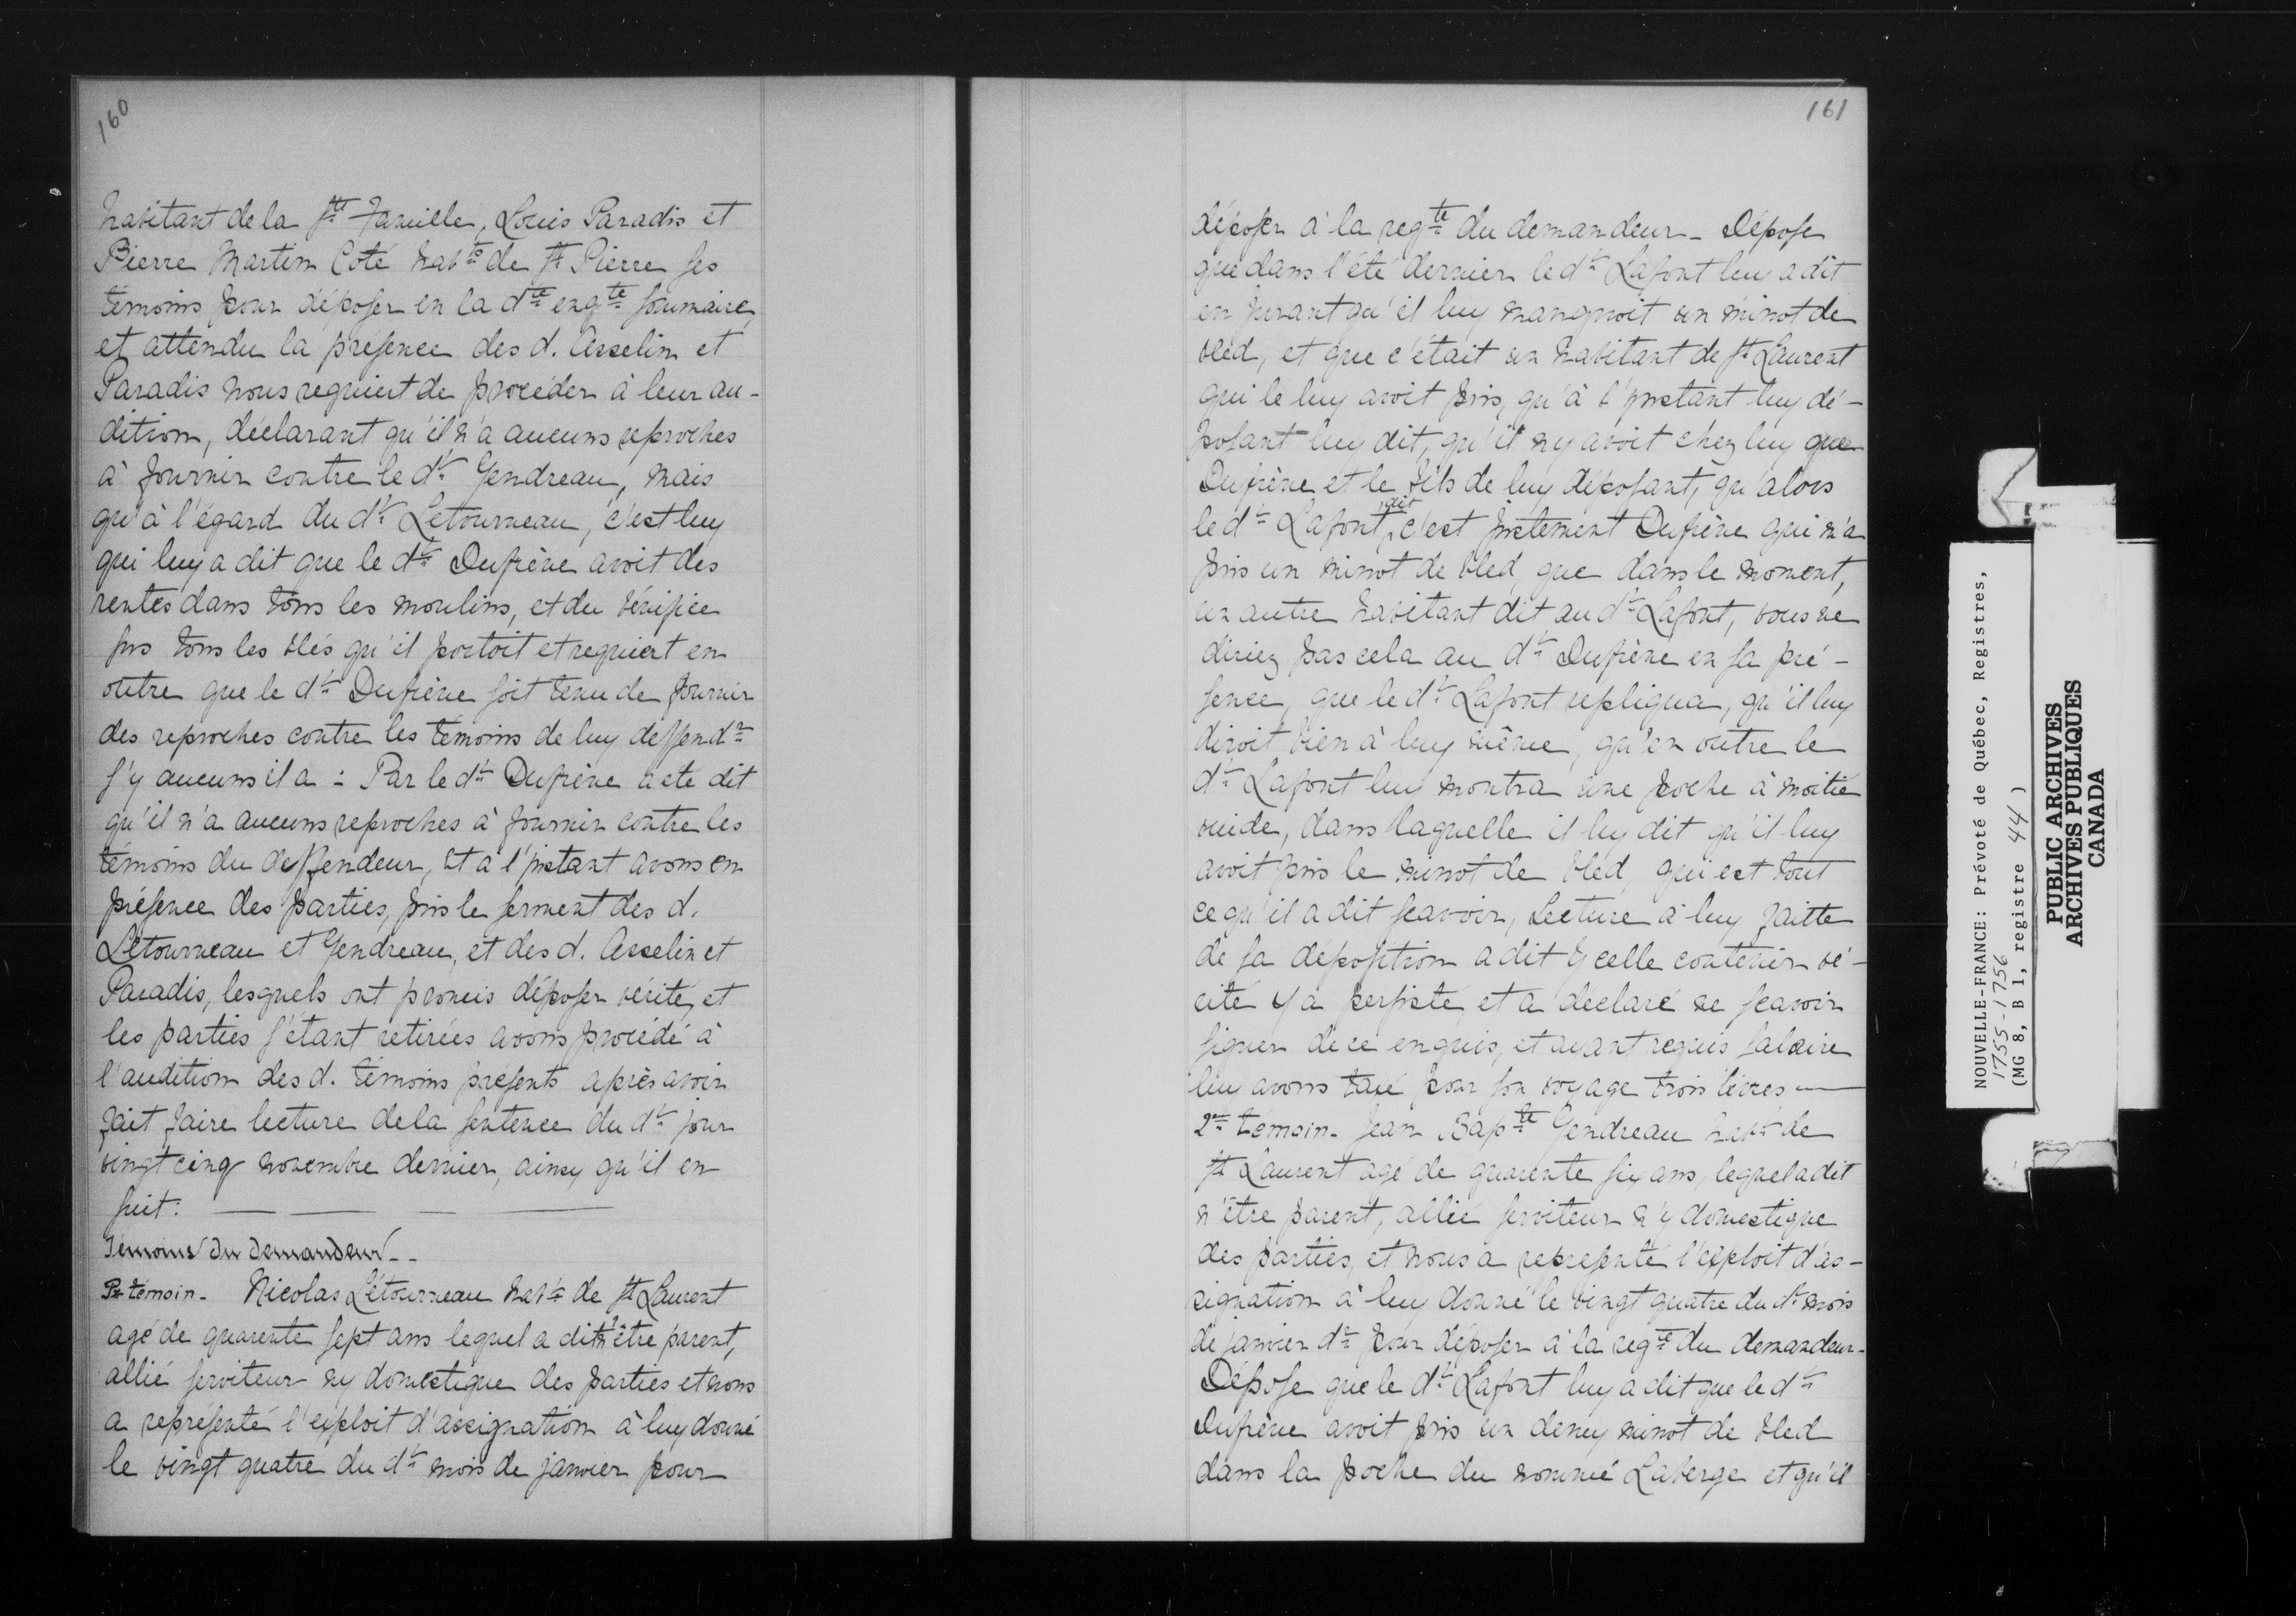 160
habitant de la Ste Famille, Louis Paradis et
Pierre Martin Coté habts de St Pierre ses
témoins pour déposer en la dte enqte sommaire,
et attendu la présence des d. Asselin et
Paradis nous requiert de procéder à leur au-
dition, déclarant qu'il n'a aucuns reproches
à fournir contre le dt Gendreau, mais
qu'à l'égard du dt Letourneau, c'est luy
qui luy a dit que le dt Dufrène avoit des
rentes dans tous les moulins, et du bénifice
sus tous les blés qu'il portoit et requiert en
outre que le dt Dufrène soit tenu de fournir
des reproches contre les témoins de luy deffendr
s'y aucuns il a : Par le dt Dufrène a été dit
qu'il n'a aucuns reproches à fournir contre les
témoins du deffendeur, Et a l'jnstant avons en
présence des parties, pris le serment des d.
Letourneau et Gendreau, et des d. Asselin et
Paradis, lesquels ont promis déposer vérité, et
les parties s'étant retirées avons procédé à
l'audition des d. témoins présents après avoir
fait faire lecture de la sentence du dt jour
vingt cinq novembre dernier, ainsy qu'il en
suit:
Témoins du Demandeur --
Pr témoin - Nicolas Létourneau habt de St Laurent
agé de quarente sept ans lequel a dit n'être parent,
allié serviteur ny domestique des parties et nous
a représenté l'exploit d'assignation à luy donné
le vingt quatre du dt mois de janvier pour
161
déposer à la reqte du demandeur - Dépose
que dans l'été dernier le dt Lafont luy a dit
en jurant qu'il luy manquoit un minot de
bled, et que c'était un habitant de St Laurent
qui le luy avoit pris, qu'à l'jnstant luy dé-
posant luy dit, qu'il n'y avoit chez luy que
Dufrène et le fils de luy déposant, qu'alors
le dt Lafont, dit c'est justement Dufrène qui m'a
pris un minot de bled, que dans le moment,
un autre habitant dit au dt Lafont, vous ne
diriez pas cela au dt Dufrène en sa pré-
sence, que le dt Lafont repliqua, qu'il luy
diroit bien à luy même, qu'en outre le
dt Lafont luy montra une poche à moitié
vuide, dans laquelle il luy dit qu'il luy
avoit pris le minot de bled, qui est tout
ce qu'il a dit scavoir, Lecture à luy faitte
de sa déposition a dit ycelle contenir vé-
rité y a persisté, et a déclaré ne scavoir
signer de ce enquis, et avant requis salaire
luy avons taxé pour son voyage trois livres
2e témoin - Jean Bapte Gendreau habt de
St Laurent agé de quarente six ans, lequel a dit
n'être parent, allié serviteur n'y domestique
des parties, et nous a représenté l'exploit d'as-
signation à luy donné le vingt quatre du dt mois
de janvier dr pour déposer à la reqte du demandeur -
Dépose que le dt Lafont luy a dit que le dt
Dufrène avoit pris un demy minot de bled
dans la poche du nommé Laberge et qu'il
NOUVELLE-FRANCE: Prévoté de Québec, Registres,
1755-1756
(MG 8, B 1, registre 44)
PUBLIC ARCHIVES
ARCHIVES PUBLIQUES
CANADA